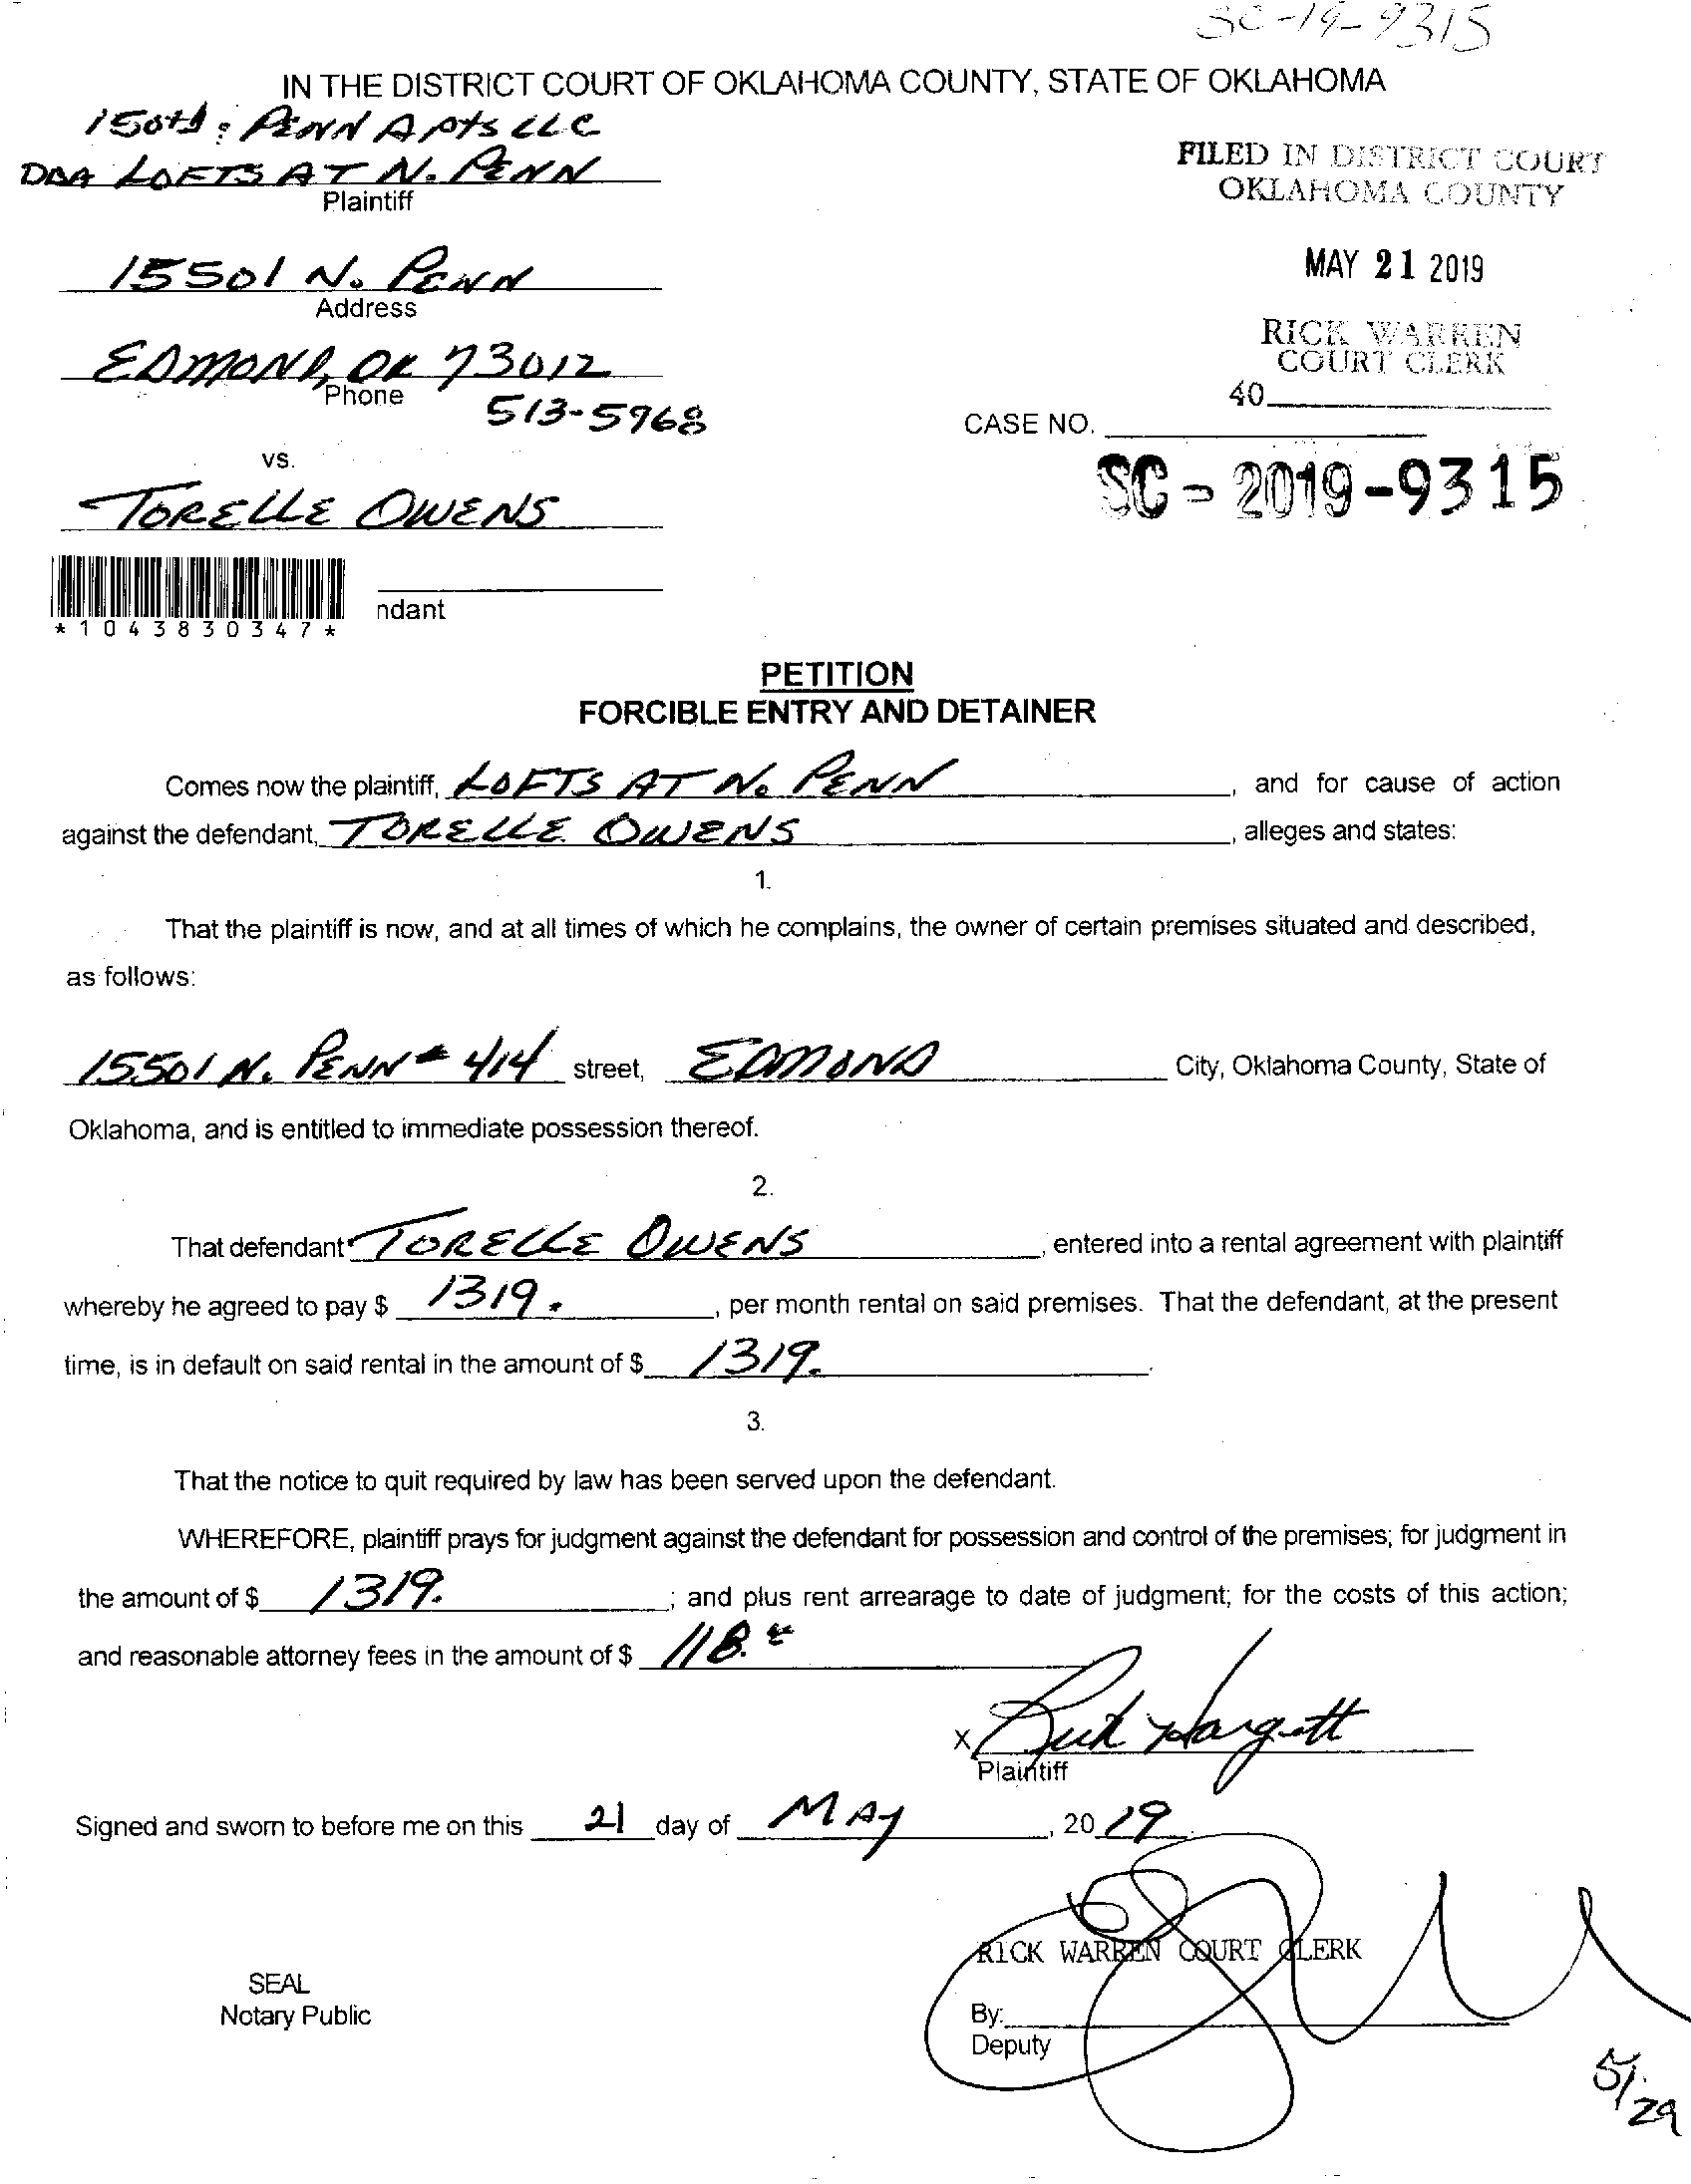 SC-19-9315
IN THE DISTRICT COURT OF OKLAHOMA COUNTY, STATE OF OKLAHOMA
150th: PENN APTS LLC
DBA LOFTS AT N. PENN
Plaintiff
FILED IN DISTRICT COURT
OKLAHOMA COUNTY
15501 N. PENN
Address
MAY 21 2019
RICK WARREN
COURT CLERK
EDMOND, OK 73012
Phone
513-5968
40
CASE NO.
SC-2019-9315
vs.
TORELLE OWENS
*1043830347*
ndant
PETITION
FORCIBLE ENTRY AND DETAINER
Comes now the plaintiff, LOFTS AT N. PENN, and for cause of action
against the defendant, TORELLE OWENS, alleges and states:
1.
That the plaintiff is now, and at all times of which he complains, the owner of certain premises situated and described,
as follows:
15501 N. PENN # 414 street, EDMOND City, Oklahoma County, State of
Oklahoma, and is entitled to immediate possession thereof.
2.
That defendant TORELLE OWENS, entered into a rental agreement with plaintiff
whereby he agreed to pay $ 1319., per month rental on said premises. That the defendant, at the present
time, is in default on said rental in the amount of $ 1319.
3.
That the notice to quit required by law has been served upon the defendant.
WHEREFORE, plaintiff prays for judgment against the defendant for possession and control of the premises; for judgment in
the amount of $ 1319.; and plus rent arrearage to date of judgment; for the costs of this action;
and reasonable attorney fees in the amount of $ 118.
X Rick Hargett
Plaintiff
Signed and sworn to before me on this 21 day of MAY, 2019
RICK WARREN COURT CLERK
SEAL
Notary Public
By:
Deputy
5/29